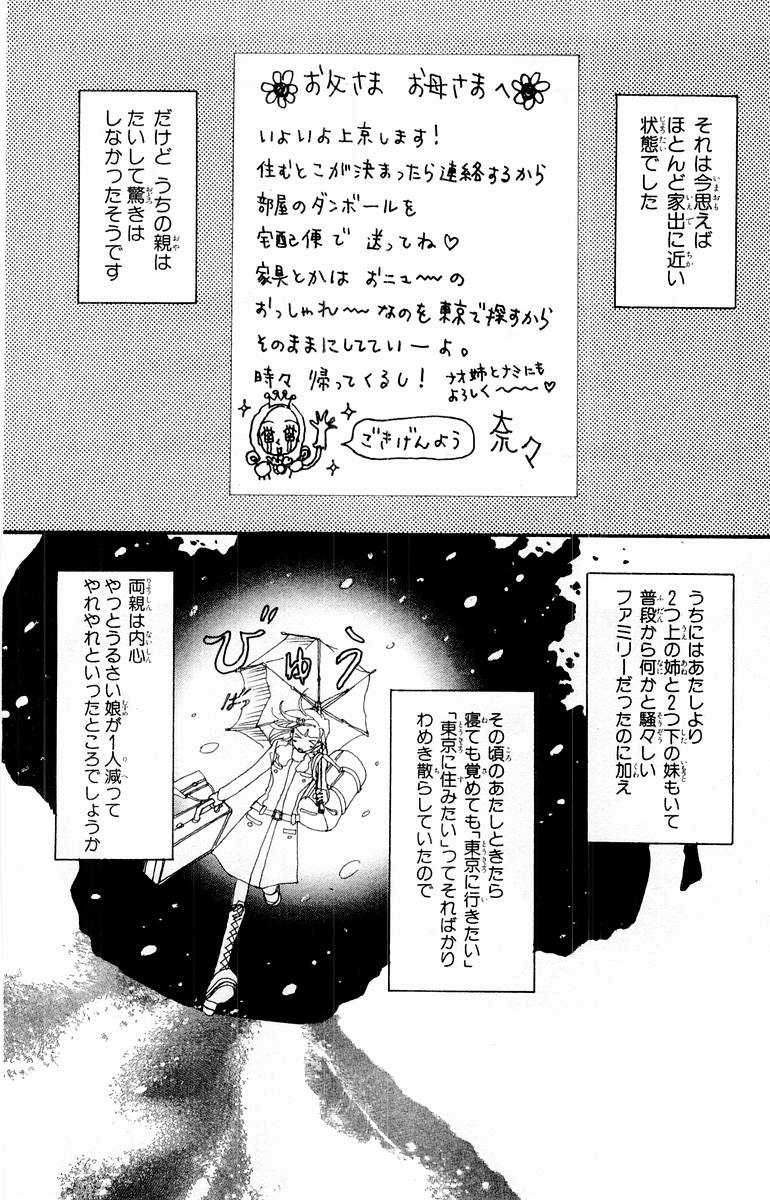 それは今思えば
ほとんど家出に近い
状態でした
お父さま お母さまへ
いよいよ上京します!
住むとこが決まったら連絡するから
部屋のダンボールを
宅配便で 送ってね♡
家具とかは おニュ〜〜の
おっしゃれ〜〜なのを東京で探すから
そのままにしてていーよ。
時々 帰ってくるし!
ナオ姉とナミにも
よろしく〜〜〜♡
ごきげんよう
奈々
だけど うちの親は
たいして驚きは
しなかったそうです
うちにはあたしより
2つ上の姉と2つ下の妹もいて
普段から何かと騒々しい
ファミリーだったのに加え
その頃のあたしときたら
寝ても覚めても「東京に行きたい」
「東京に住みたい」ってそればかり
わめき散らしていたので
びゅう
ばっ
両親は内心
やっとうるさい娘が1人減って
やれやれといったところでしょうか